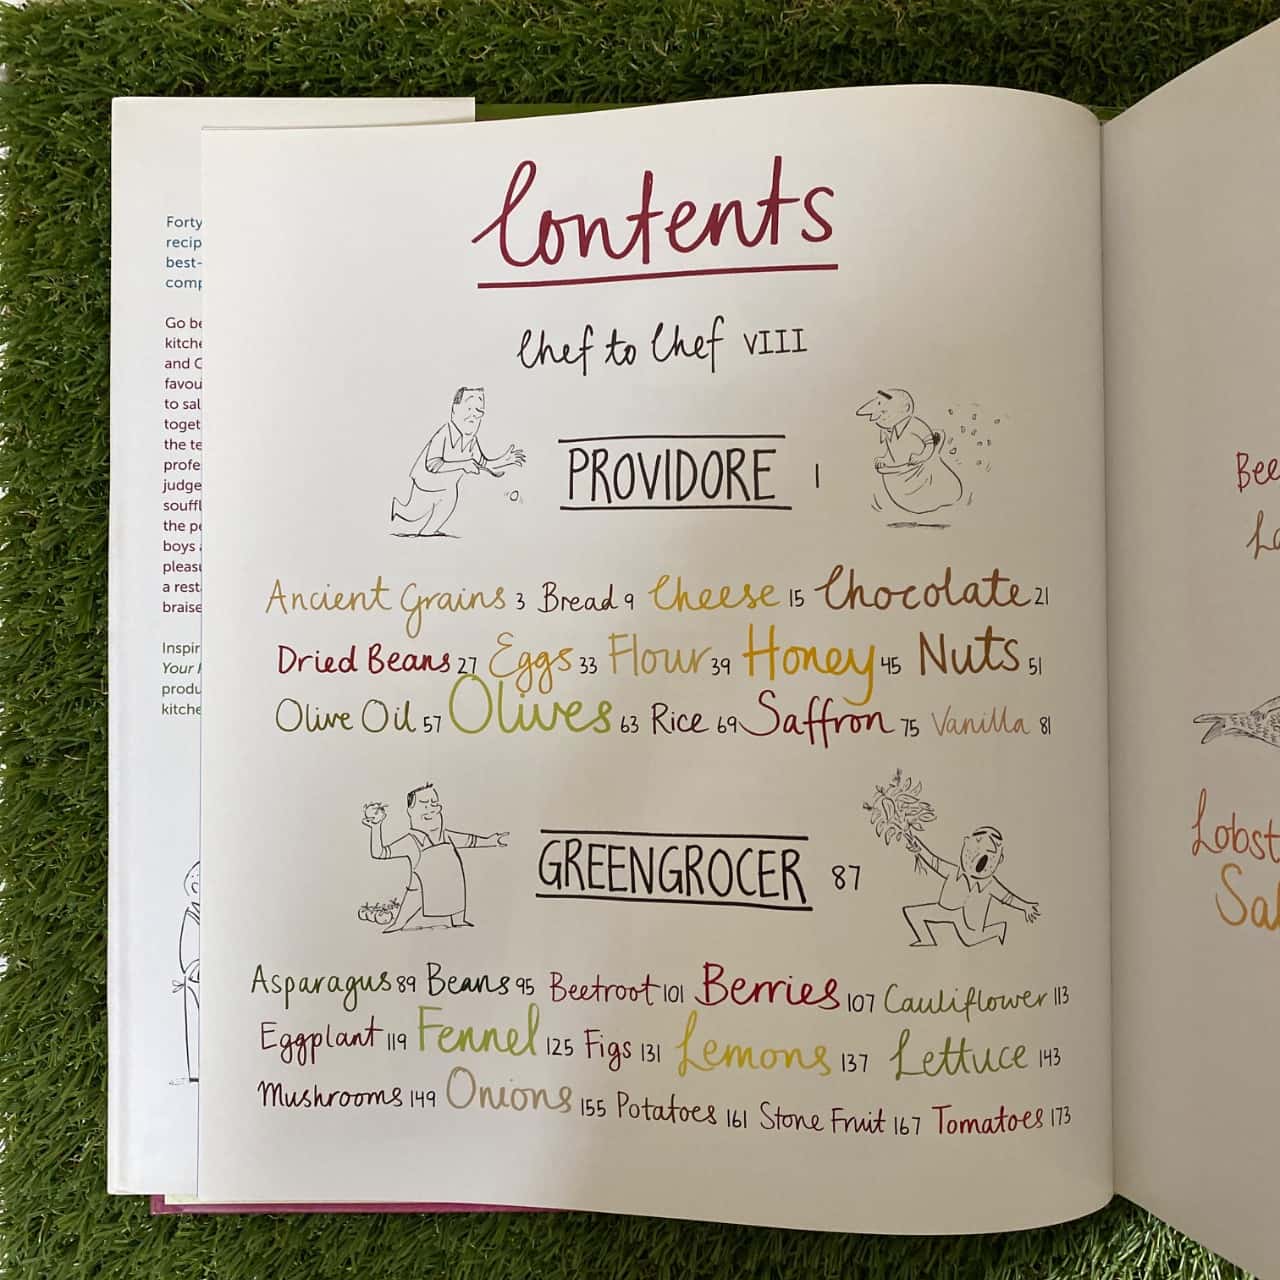 Forty
recip
best-
comp
Go be
kitche
and G
favou
to sal
toget
the te
profe
judge
souffl
the pe
boys a
pleasu
a rest
braise
Inspir
Your
produ
kitche
Contents
Chef to Chef VIII
PROVIDORE 1
Ancient Grains 3 Bread 9 Cheese 15 Chocolate 21
Dried Beans 27 Eggs 33 Flour 39 Honey 45 Nuts 51
Olive Oil 57 Olives 63 Rice 69 Saffron 75 Vanilla 81
GREENGROCER 87
Asparagus 89 Beans 95 Beetroot 101 Berries 107 Cauliflower 113
Eggplant 119 Fennel 125 Figs 131 Lemons 137 Lettuce 143
Mushrooms 149 Onions 155 Potatoes 161 Stone Fruit 167 Tomatoes 173
Bee
La
Lobst
Sal